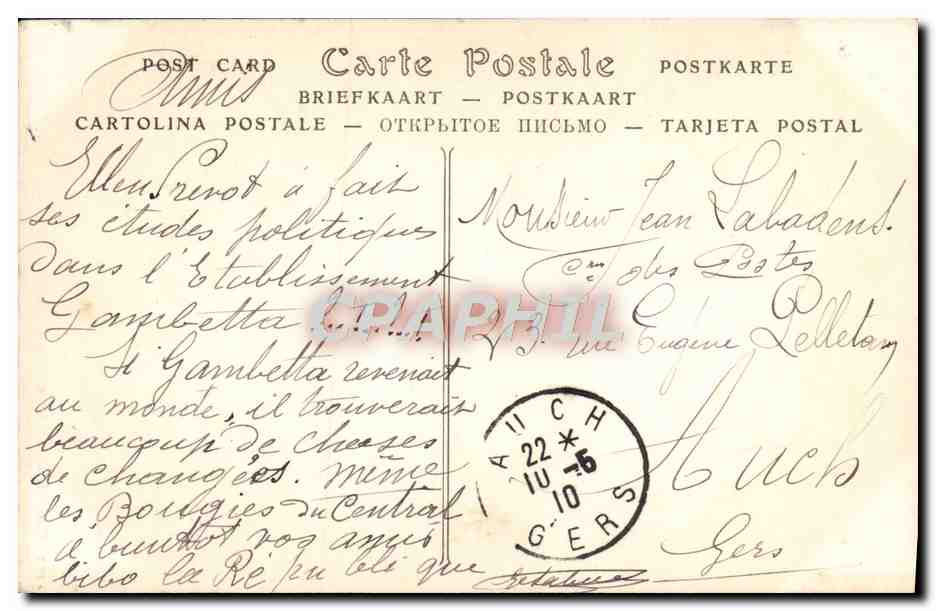 POST CARD Carte Postale POSTKARTE
BRIEFKAART — POSTKAART
CARTOLINA POSTALE — ОТКРЫТОЕ ПИСЬМО — TARJETA POSTAL
Amis
Ellen Prevot à fait
ses études politiques
Dans l'Etablissement
Gambetta
Si Gambetta revenait
au monde, il trouverait
beaucoup de choses
de changées. même
les Bougies du Central
à bientot vos amis
bibo la Ré pu bli que
Monsieur Jean Labadens.
des Postes
23. rue Eugène Pelletan
Auch
Gers
AUCH
22 *
10 -5
10
GERS
CPAPHIL